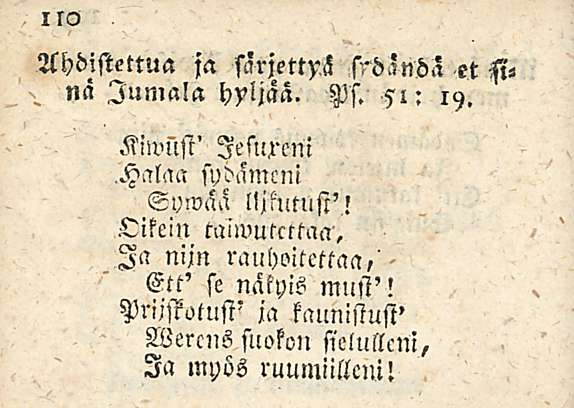 110
Ahdistettua ja särjettyä sydändä et si-
nä Jumala hyljää. Ps. 51: 19.
Kiwust' Jesuxeni
Halaa sydämeni
Sywää lijkutust'!
Oikein taiwutettaa,
Ja nijn rauhoitettaa,
Ett' se näkyis must'!
Prijskotust' ja kaunistust'
Werens suokon sielulleni,
Ja myös ruumiilleni!